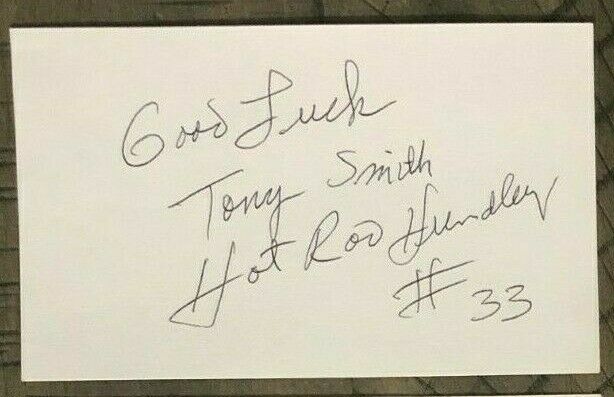 Good Luck
Tony Smith
Hot Rod Hundley
# 33